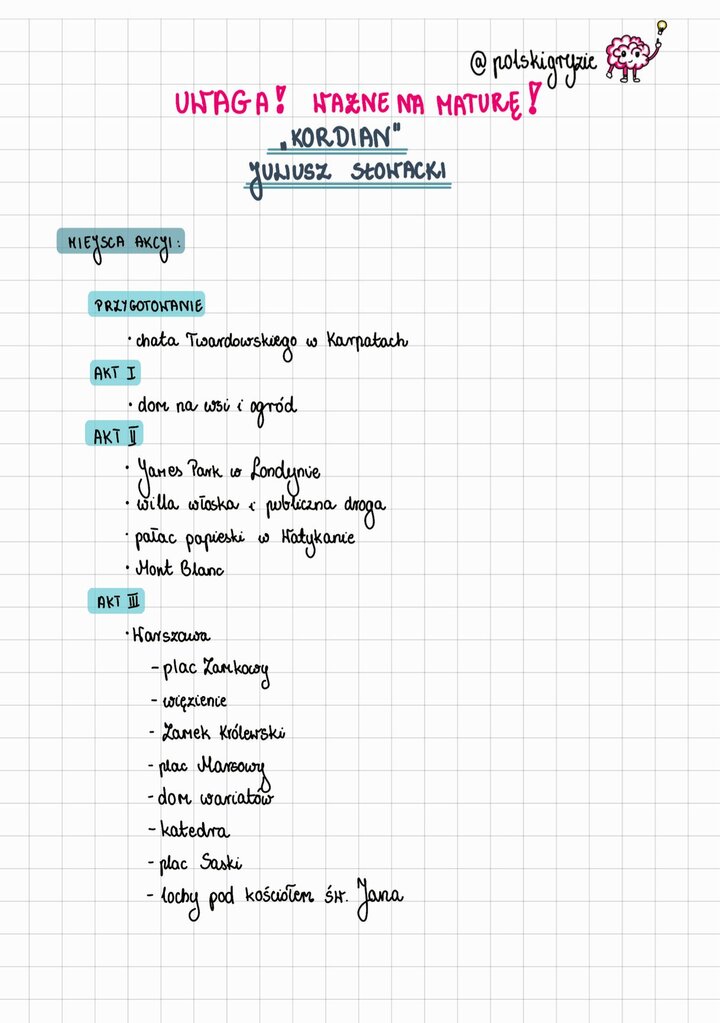 @polskigryzie
UWAGA! WAŻNE NA MATURĘ!
„KORDIAN"
JULIUSZ SŁOWACKI
MIEJSCA AKCJI:
PRZYGOTOWANIE
· chata Twardowskiego w Karpatach
AKT I
· dom na wsi i ogród
AKT II
· James Park w Londynie
· willa włoska i publiczna droga
· pałac papieski w Watykanie
· Mont Blanc
AKT III
· Warszawa
- plac Zamkowy
- więzienie
- Zamek Królewski
- plac Marsowy
- dom wariatów
- katedra
- plac Saski
- lochy pod kościołem św. Jana